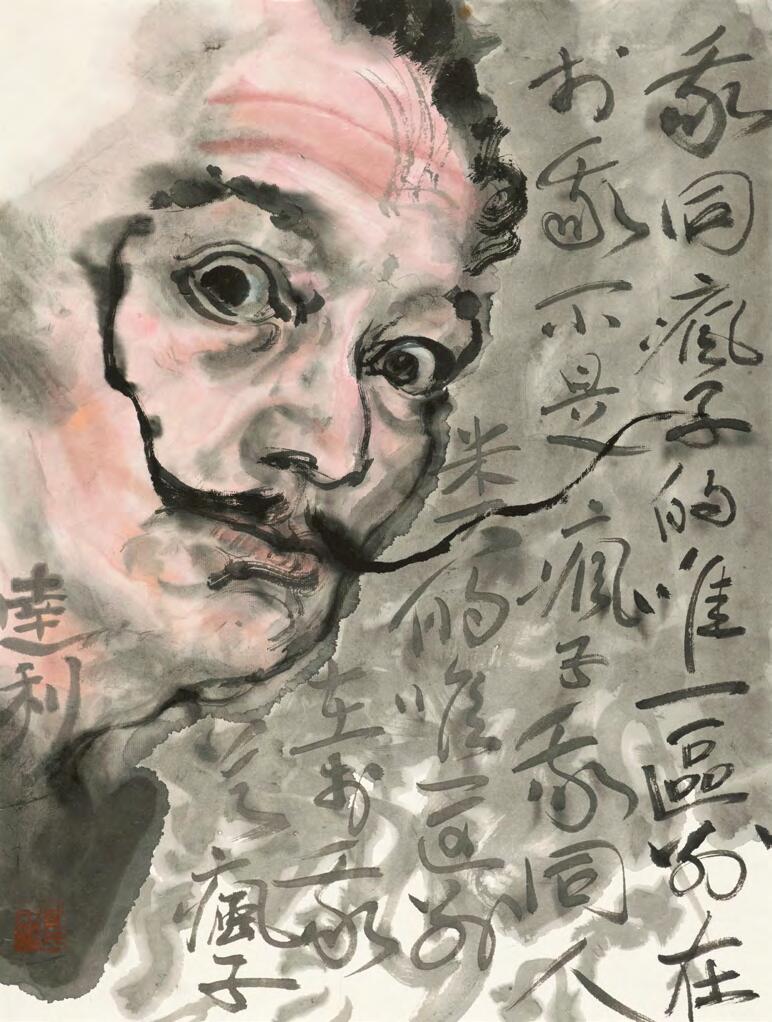 我同瘋子的唯一區別在
於我不是瘋子我同人
类的唯一区别
在於我
是瘋子
達利